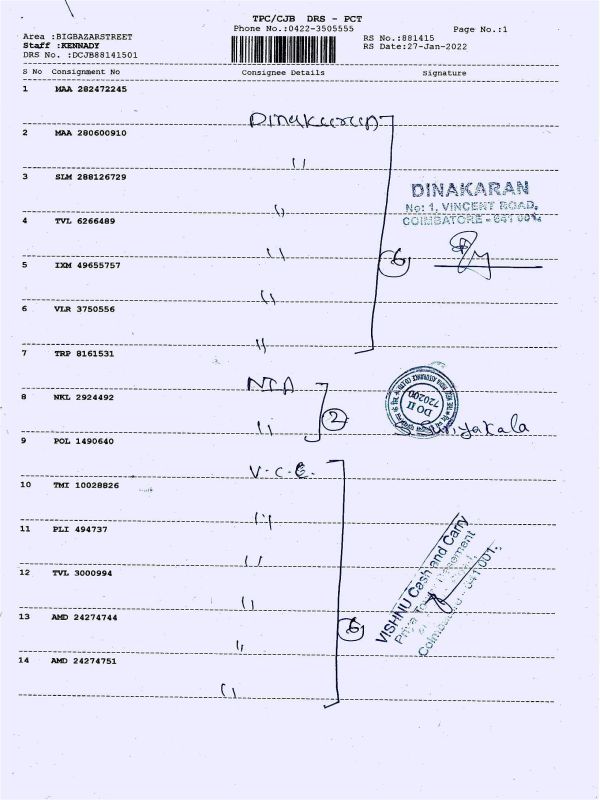 TPC/CJB DRS - PCT
Phone No.:0422-3505555
Page No.:1
Area :BIGBAZARSTREET
RS No.:881415
Staff :KENNADY
RS Date:27-Jan-2022
DRS No. :DCJB88141501
S No Consignment No Consignee Details Signature
1 MAA 282472245
Dinakaran
2 MAA 280600910
"
3 SLM 288126729
DINAKARAN
No: 1, VINCENT ROAD,
COIMBATORE - 641 001.
"
4 TVL 6266489
"
5 IXM 49655757
6
"
6 VLR 3750556
"
7 TRP 8161531
NIA
8 NKL 2924492
DO II
720200
2
"
Suriyakala
9 POL 1490640
V.C.C.
10 TMI 10028826
"
11 PLI 494737
"
12 TVL 3000994
VISHNU Cash and Carry
"
13 AMD 24274744
6
"
14 AMD 24274751
"